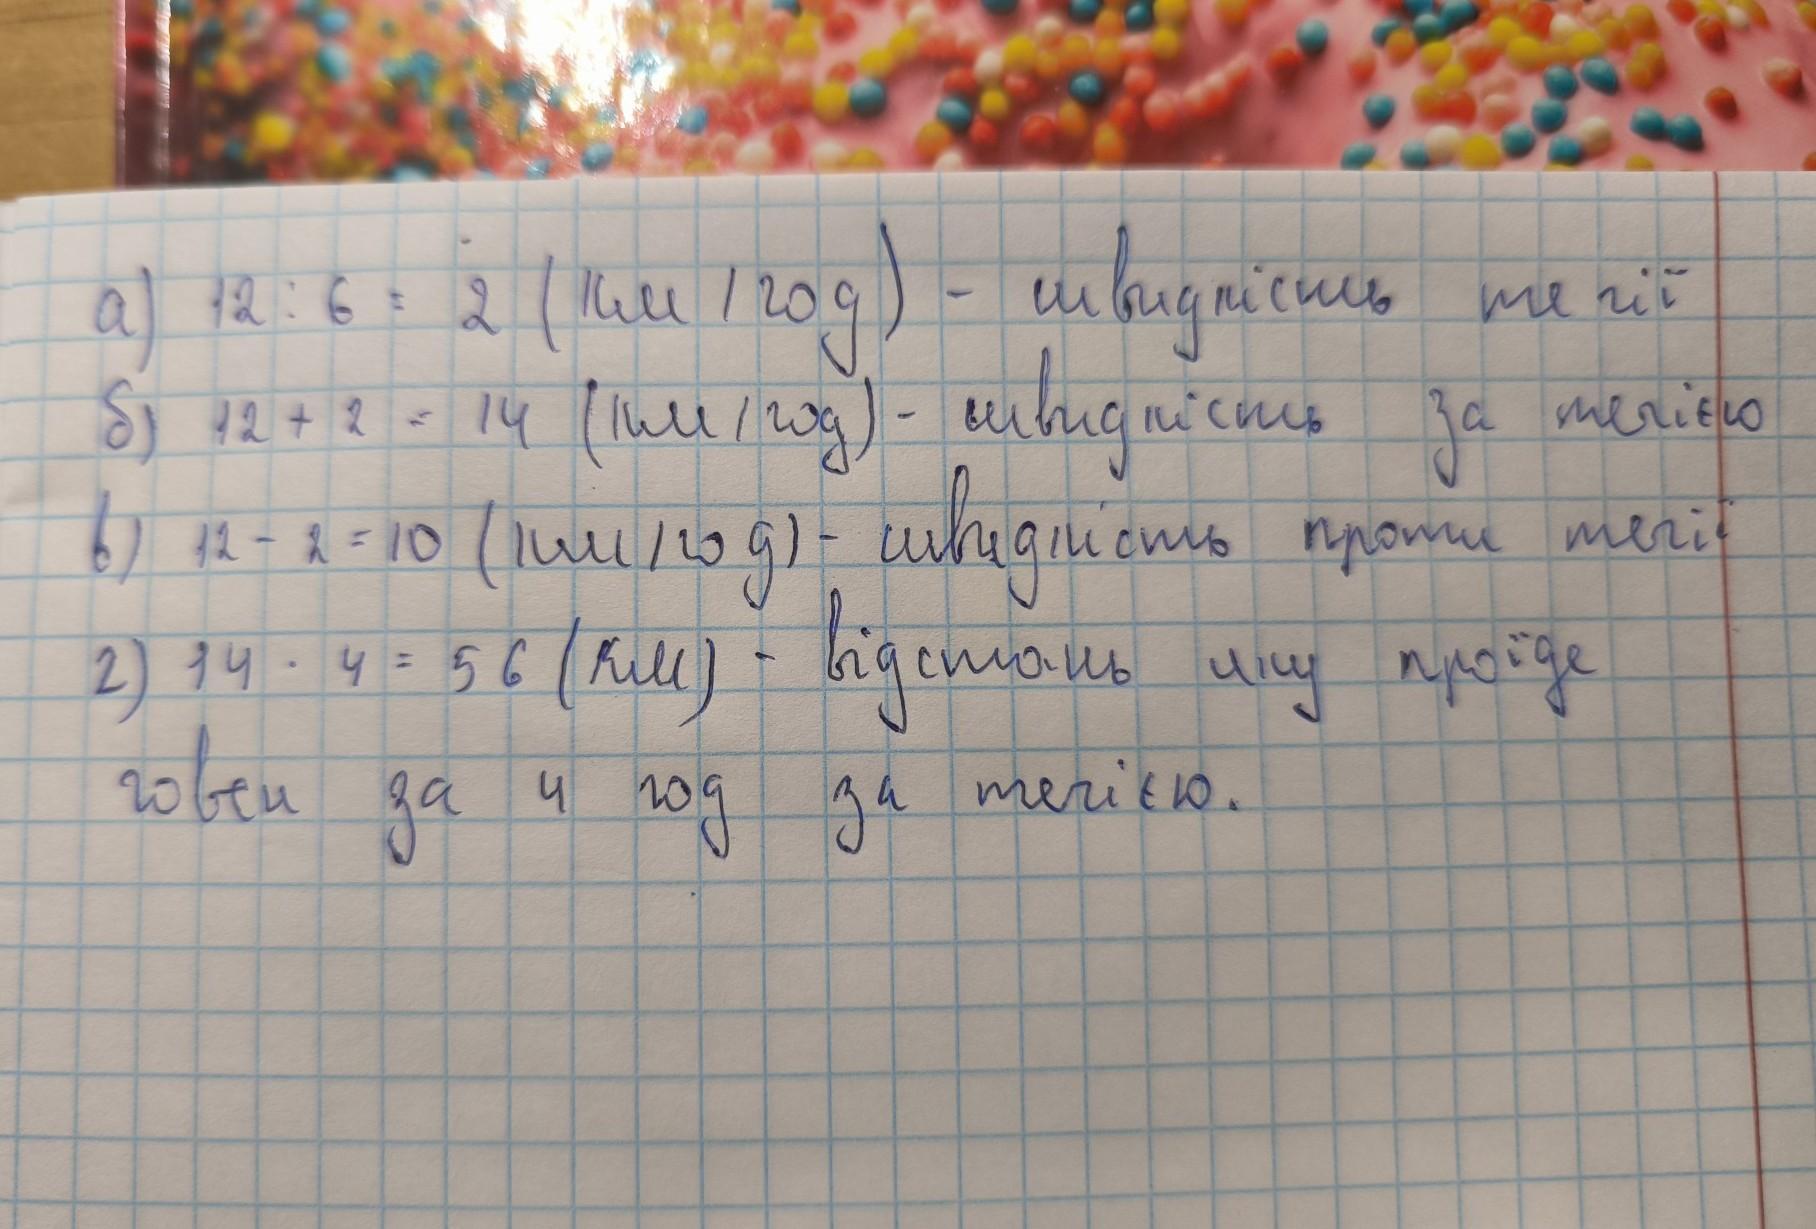 а) 12 : 6 = 2 (км/год) - швидкість течії
б) 12 + 2 = 14 (км/год) - швидкість за течією
в) 12 - 2 = 10 (км/год) - швидкість проти течії
г) 14 · 4 = 56 (км) - відстань яку проїде
човен за 4 год за течією.